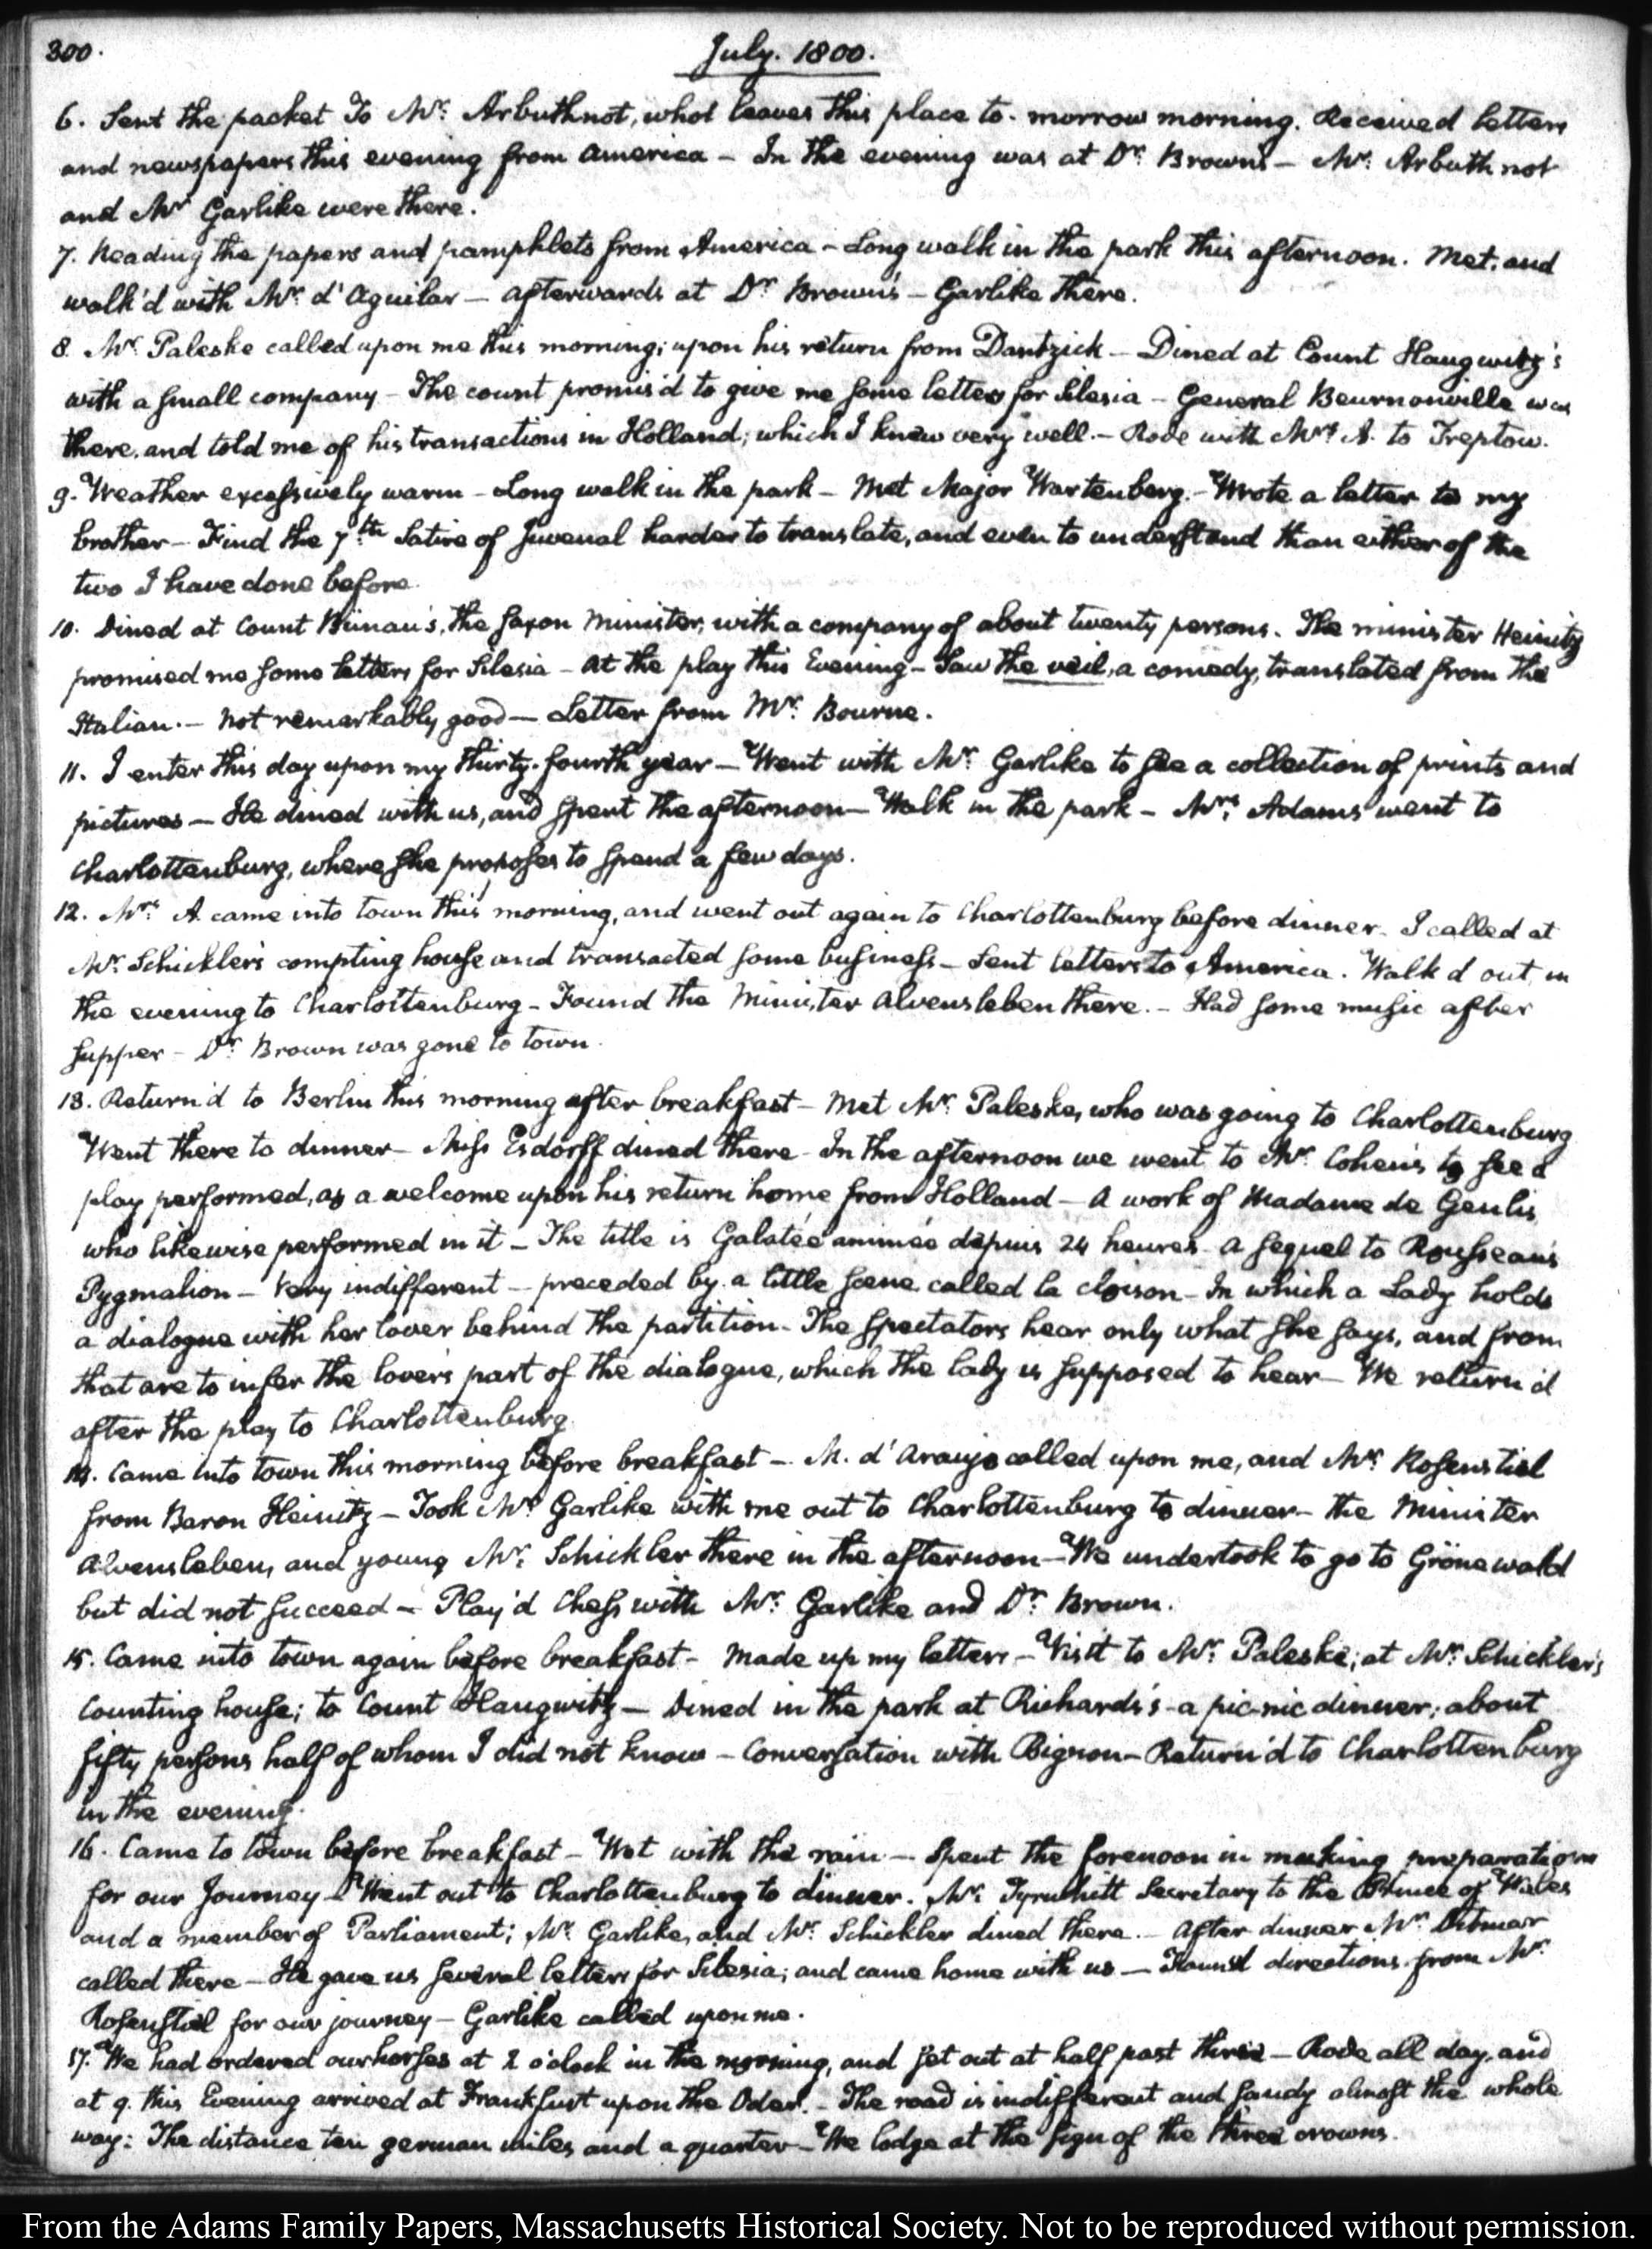 300.
July. 1800.
6. Sent the packet to Mr. Arbuthnot, who leaves this place to-morrow morning. Received letters
and newspapers this evening from America – In the evening was at Dr. Brown's – Mr. Arbuthnot
and Mr. Garlike were there.
7. Reading the papers and pamphlets from America – Long walk in the park this afternoon. Met, and
walk'd with Mr. d'Aguilar – afterwards at Dr. Brown's – Garlike there.
8. Mr. Paleske called upon me this morning; upon his return from Dantzick – Dined at Count Haugwitz's
with a small company – The count promis'd to give me some letters for Silesia – General Beurnonville was
there, and told me of his transactions in Holland; which I knew very well. – Rode with Mrs. A. to Treptow.
9. Weather excessively warm – Long walk in the park – Met Major Wartenberg. – Wrote a letter to my
brother – Find the 7th. Satire of Juvenal harder to translate, and even to understand than either of the
two I have done before.
10. Dined at Count Bünau's, the Saxon Minister, with a company of about twenty persons. The minister Heinitz
promised me some letters for Silesia – At the play this Evening – Saw the veil, a comedy, translated from the
Italian. – Not remarkably good – Letter from Mr. Bourne.
11. I enter this day upon my thirty-fourth year – Went with Mr. Garlike to see a collection of prints and
pictures – He dined with us, and spent the afternoon – Walk in the park – Mrs. Adams went to
Charlottenburg, where she proposes to spend a few days.
12. Mrs. A. came into town this morning, and went out again to Charlottenburg before dinner. I called at
Mr. Schickler's compting house and transacted some business – Sent letters to America. Walk'd out in
the evening to Charlottenburg – Found the Minister Alvensleben there. – Had some music after
supper – Dr. Brown was gone to town.
13. Return'd to Berlin this morning after breakfast – Met Mr. Paleske, who was going to Charlottenburg
Went there to dinner – Miss Esdorff dined there – In the afternoon we went to Mr. Cohen's to see a
play performed, as a welcome upon his return home from Holland – A work of Madame de Genlis
who likewise performed in it – The title is Galatée animée depuis 24 heures – a sequel to Rousseau's
Pygmalion – Very indifferent – preceded by a little scene called la cloison – In which a Lady holds
a dialogue with her lover behind the partition – The spectators hear only what she says, and from
that are to infer the lover's part of the dialogue, which the lady is supposed to hear – We return'd
after the play to Charlottenburg.
14. Came into town this morning before breakfast – M. d'Araujo called upon me, and Mr. Rosenstiel
from Baron Heinitz – Took Mr. Garlike with me out to Charlottenburg to dinner – the Minister
Alvensleben, and young Mr. Schickler there in the afternoon – We undertook to go to Grönewald
but did not succeed – Play'd Chess with Mr. Garlike and Dr. Brown.
15. Came into town again before breakfast – Made up my letters – Visit to Mr. Paleske; at Mr. Schickler's
counting house; to Count Haugwitz – Dined in the park at Richards's – a pic-nic dinner; about
fifty persons half of whom I did not know – Conversation with Bignon – Return'd to Charlottenburg
in the evening.
16. Came to town before breakfast – Wet with the rain – Spent the forenoon in making preparations
for our Journey – Went out to Charlottenburg to dinner. Mr. Tyrwhitt Secretary to the Prince of Wales
and a member of Parliament; Mr. Garlike, and Mr. Schickler dined there. – After dinner Mr. Ditmar
called there – He gave us several letters for Silesia; and came home with us – Found directions from Mr.
Rosenstiel for our journey – Garlike called upon me.
17. We had ordered our horses at 2 o'clock in the morning, and set out at half past three – Rode all day, and
at 9. this Evening arrived at Frankfurt upon the Oder. – The road is indifferent and sandy almost the whole
way: The distance ten german miles and a quarter – We lodge at the sign of the three crowns.
From the Adams Family Papers, Massachusetts Historical Society. Not to be reproduced without permission.